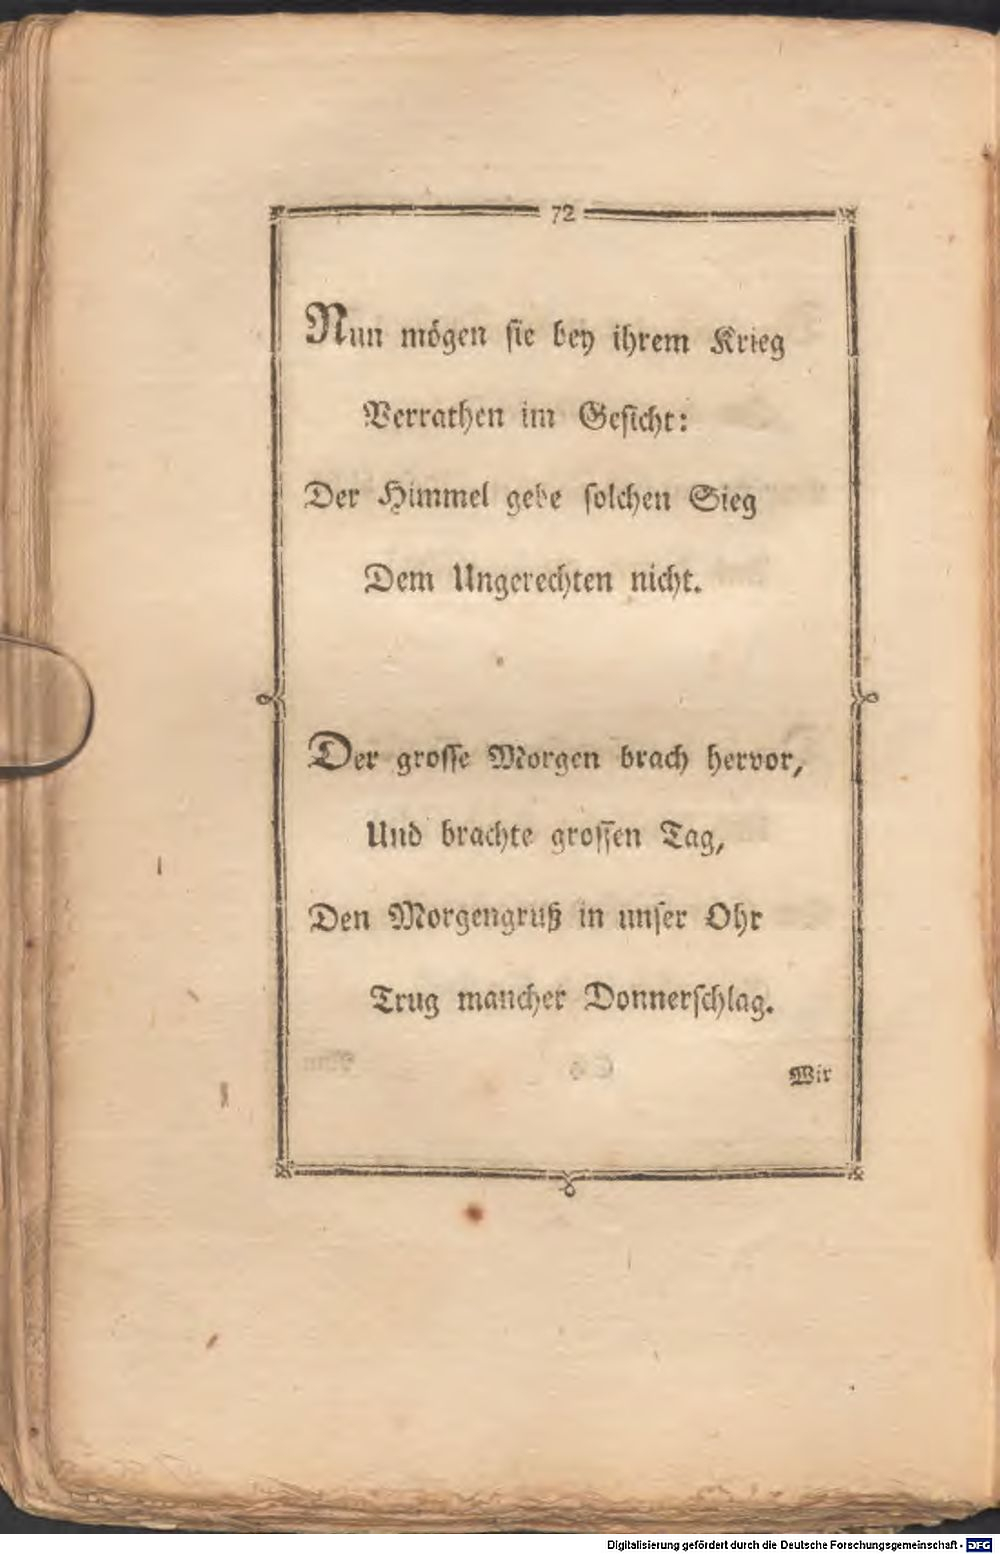 72
Nun mögen ſie bey ihrem Krieg
Verrathen im Geſicht:
Der Himmel gebe ſolchen Sieg
Dem Ungerechten nicht.
Der groſſe Morgen brach hervor,
Und brachte groſſen Tag,
Den Morgengruß in unſer Ohr
Trug mancher Donnerſchlag.
Wir
Digitalisierung gefördert durch die Deutsche Forschungsgemeinschaft - DFG